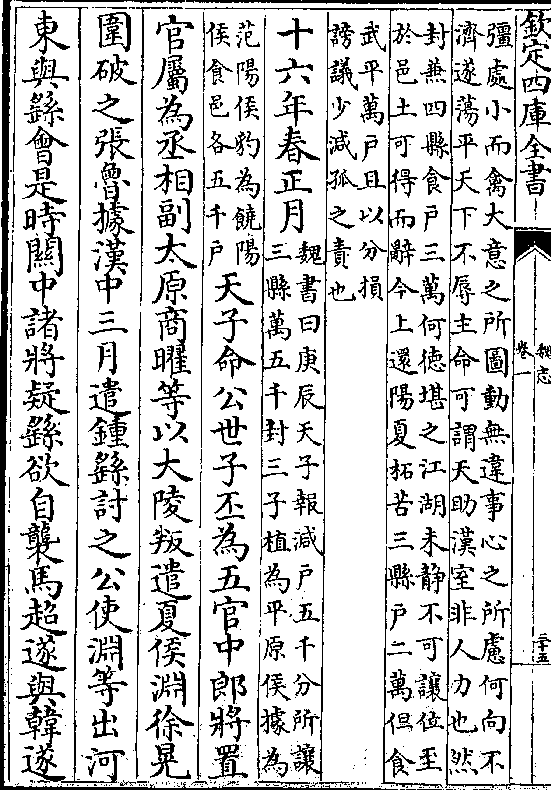 欽定四庫全書
魏志
卷一
二十五
彊處小而禽大意之所圖動無違事心之所慮何向不
濟遂蕩平天下不辱主命可謂天助漢室非人力也然
封兼四縣食戶三萬何德堪之江湖未静不可讓位至
於邑土可得而辭今上還陽夏柘苦三縣戶二萬但食
武平萬戶且以分損
謗議少減孤之責也
十六年春正月
魏書曰庚辰天子報減戶五千分所讓
三縣萬五千封三子植為平原侯據為
范陽侯豹為饒陽
侯食邑各五千戶
天子命公世子丕為五官中郎將置
官屬為丞相副太原商曜等以大陵叛遣夏侯淵徐晃
圍破之張魯據漢中三月遣鍾繇討之公使淵等出河
東與繇會是時關中諸將疑繇欲自襲馬超遂與韓遂